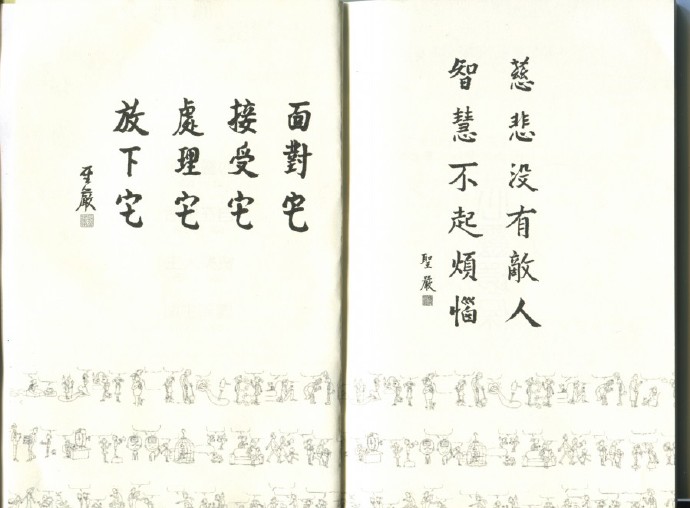 慈悲沒有敵人
智慧不起煩惱
聖嚴
面對它
接受它
處理它
放下它
聖嚴